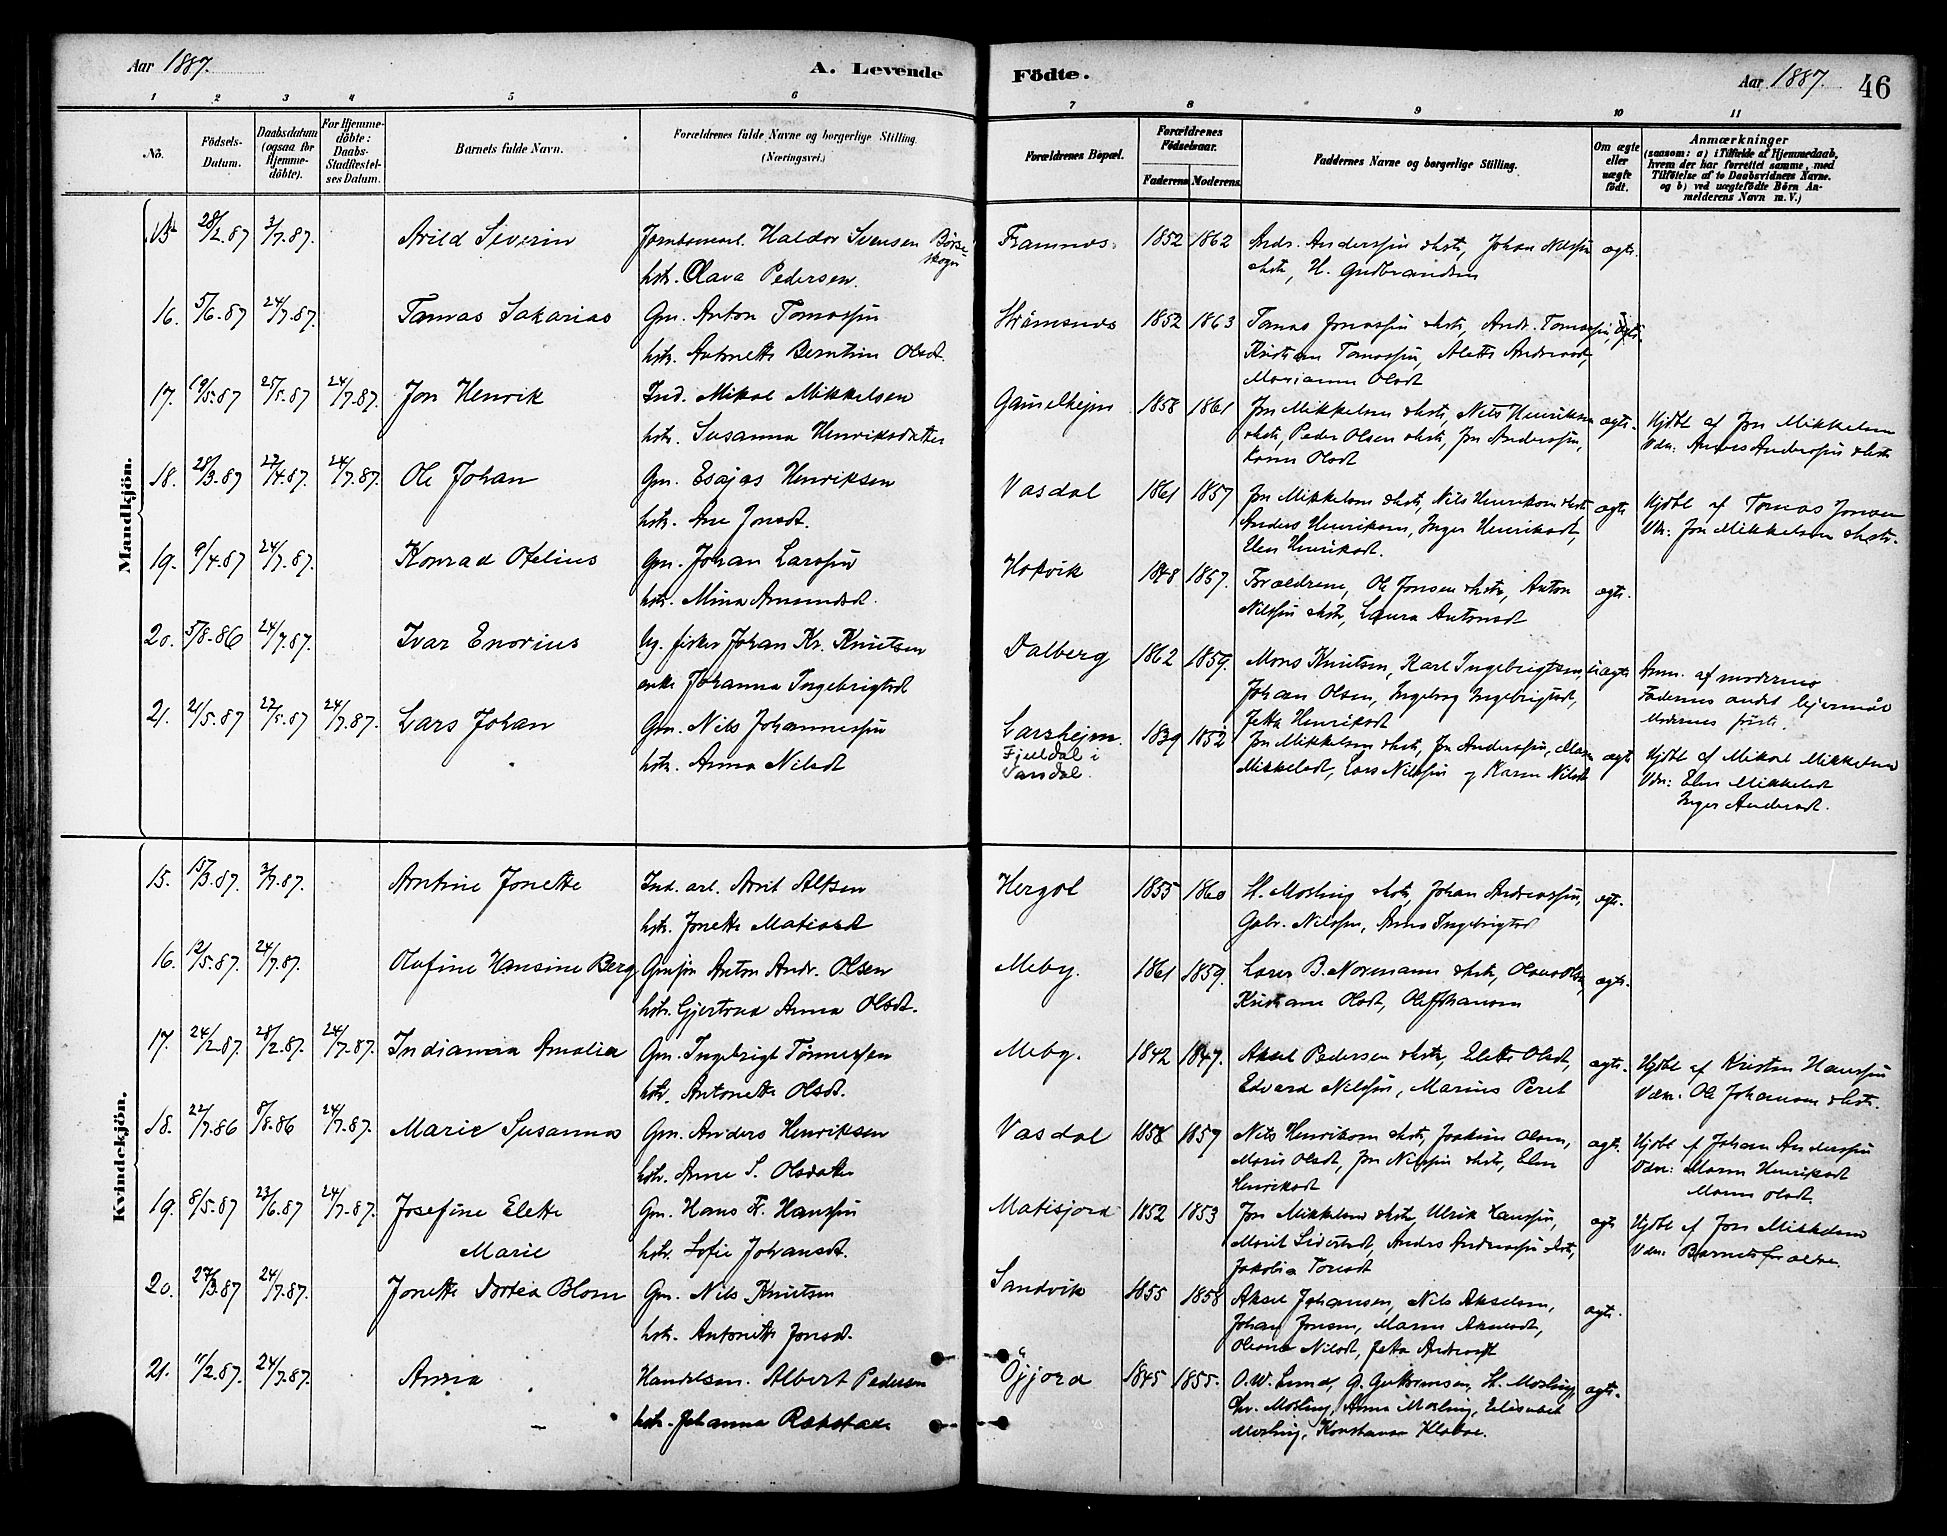 Aar 1887.
A. Levende
Födte.
Aar 1887.
46
1 2 3 4 5 6 7 8 9 10 11
No.
Födsels-
Datum.
Daabsdatum
(ogsaa for
Hjemme-
döbte).
For Hjemme-
döbte:
Daabs-
Stadfæstel-
ses Datum.
Barnets fulde Navn.
Forældrenes fulde Navne og borgerlige Stilling.
(Næringsvei.)
Forældrenes Bopæl.
Forældrenes
Födselsaar.
Faderens Moderens
Faddernes Navne og borgerlige Stilling.
Om ægte
eller
uægte
födt.
Anmærkninger
(saasom: a) i Tilfælde af Hjemmedaab,
hvem der har forrettet samme, med
Tilföielse af to Daabsvidners Navne.
og b) ved uægtefödte Börn An-
melderens Navn m. V.)
Mandkjön.
15. 28/2.87 3/7.87. Arild Severin Jernbanearb. Haldor Svensen Börse-
skogn
hstr. Olava Pedersen.
Framnes. 1852 1862 Andr. Anderssen & hstr, Johan Nilssen
& hstr, H. Gudbrandsen
ægte.
16. 5/6.87 24/7.87. Tomas Sakarias Gm. Anton Tomassen
hstr. Antonette Berntine Olsdt.
Strömsnes 1852 1863 Tomas Jonassen & hstr, Andr. Tomassen,
Kristian Tomassen, Alette Andreasdt,
Marianne Olsdt
ægte.
17. 19/5.87 25/5.87 24/7.87. Jon Henrik Ind. Mikal Mikkelsen
hstr. Susanna Henriksdatter
Gamselhejm 1858 1861 Jon Mikkelsen & hstr, Nils Henriksen
& hstr, Peder Olsen & hstr, Jon Anderssen,
Karen Olsdt
ægte. Hjdbt af Jon Mikkelsen
Vdn. Anders Anderssen & hstr
18. 28/3.87 27/4.87. 24/7.87. Ole Johan Gm. Esajas Henriksen
hstr. Ane Jonsdt.
Vasdal 1861 1857 Jon Mikkelsen & hstr, Nils Henriksen & hstr
Anders Henriksen, Inger Henriksdt,
Elen Henriksdt.
ægte Hjdbt af Tomas Jonsen
Vdn: Jon Mikkelsen & hstr.
19. 9/4.87 24/7.87. Konrad Ofelius Gm. Johan Larssen
hstr. Mina Amundsdt.
Hokvik 1848 1857. Forældrene, Ole Jonsen & hstr, Anton
Nilssen & hstr, Laura Antonsdt
ægte.
20. 5/8.86 24/7.87. Ivar Enorius Ug. fisker Johan Kr. Knutsen
enke Johanna Ingebrigtsdt
Dalberg 1862 1859. Mons Knutsen, Karl Ingebrigtsen,
Johan Olsen, Ingeborg Ingebrigtsdt,
Jetta Henriksdt
uægte Anm. af moderens
Faderens andet lejermål
Moderens förste
21. 21/5.87 27/5.87 24/7.87. Lars Johan Gm. Nils Johannessen
hstr. Anna Nilsdt
Larshejm.
Fjeldal i
Vasdal.
1839 1852 Jon Mikkelsen & hstr, Jon Anderssen, Maren
Mikkelsdt, Lars Nilssen og Karen Nilsdt
ægte Hjdbt af Mikal Mikkelsen
Vdn: Elen Mikkelsdt
Inger Andersdt.
Kvindekjön.
15. 15/3.87. 3/7.87. Arntine Jonette Ind. arb. Arnt Altsen
hstr. Jonette Matiasdt
Hergot 1855 1860 St. Mosling & hstr, Johan Andreassen,
Gabr. Nilssen, Anna Ingebrigtsd
ægte.
16. 12/5.87. 24/7.87. Olufine Hansine Berg Gmsön Anton Andr. Olsen
hstr. Gjertrud Anna Olsdt.
Meby. 1861 1859. Lorns B. Normann & hstr,
Kristiane Olsdt,
ægte.
17. 24/2.87. 28/2.87. 24/7.87. Indianna Amalia Gm. Ingebrigt Tönnessen
hstr. Antonette Olsdt.
Meby. 1842 1847. Aksel Pedersen & hstr, Elette Olsdt,
Edvard Nilssen, Marius Peret
ægte. Hjdbt af Kristen Hanssen
Vdn. Ole Johansen & hstr.
18. 22/7.86 8/8.86 24/7.87. Marie Susannas Gm. Anders Henriksen
hstr. Anne S. Olsdatter
Vasdal 1858 1857 Nils Henriksen & hstr, Joakim Olsen,
Maris Olsdt, Jon Nilssen & hstr, Elen
Henriksdt
ægte. Hjdbt af Johan Anderssen
Vdn: Maren Henriksdt
Maren Olsdt.
19. 8/5.87 23/6.87 24/7.87. Josefine Elette
Marie
Gm. Hans K. Hanssen
hstr. Sofie Johansdt.
Matisjord 1852 1853 Jon Mikkelsen & hstr, Ulrik Hanssen,
Marit Sivertsdt, Anders Andreassen & hstr,
Jakobia Tomasdt
ægte Hjdbt af Jon Mikkelsen
Vdn: Barnets foreldre.
20. 27/3.87 24/7.87. Jonette Dortea Blom Gm. Nils Knutsen
hstr. Antonette Jonsdt.
Sandvik 1855 1858 Aksel Johansen, Nils Akselsen,
Johan Jonsen, Maren Akselsdt,
Oleana Nilsdt, Jetta Andreasdt
ægte.
21. 11/2.87. 24/7.87. Anna Handelsm. Albert Pedersen
hstr. Johanna Rækstad.
Öyjord 1845 1855. O.W. Lund, G. Guttormsen, St. Mosling,
Chr. Mosling, Anna Mosling, Elisabet
Mosling, Konstanse Klaboe.
ægte.